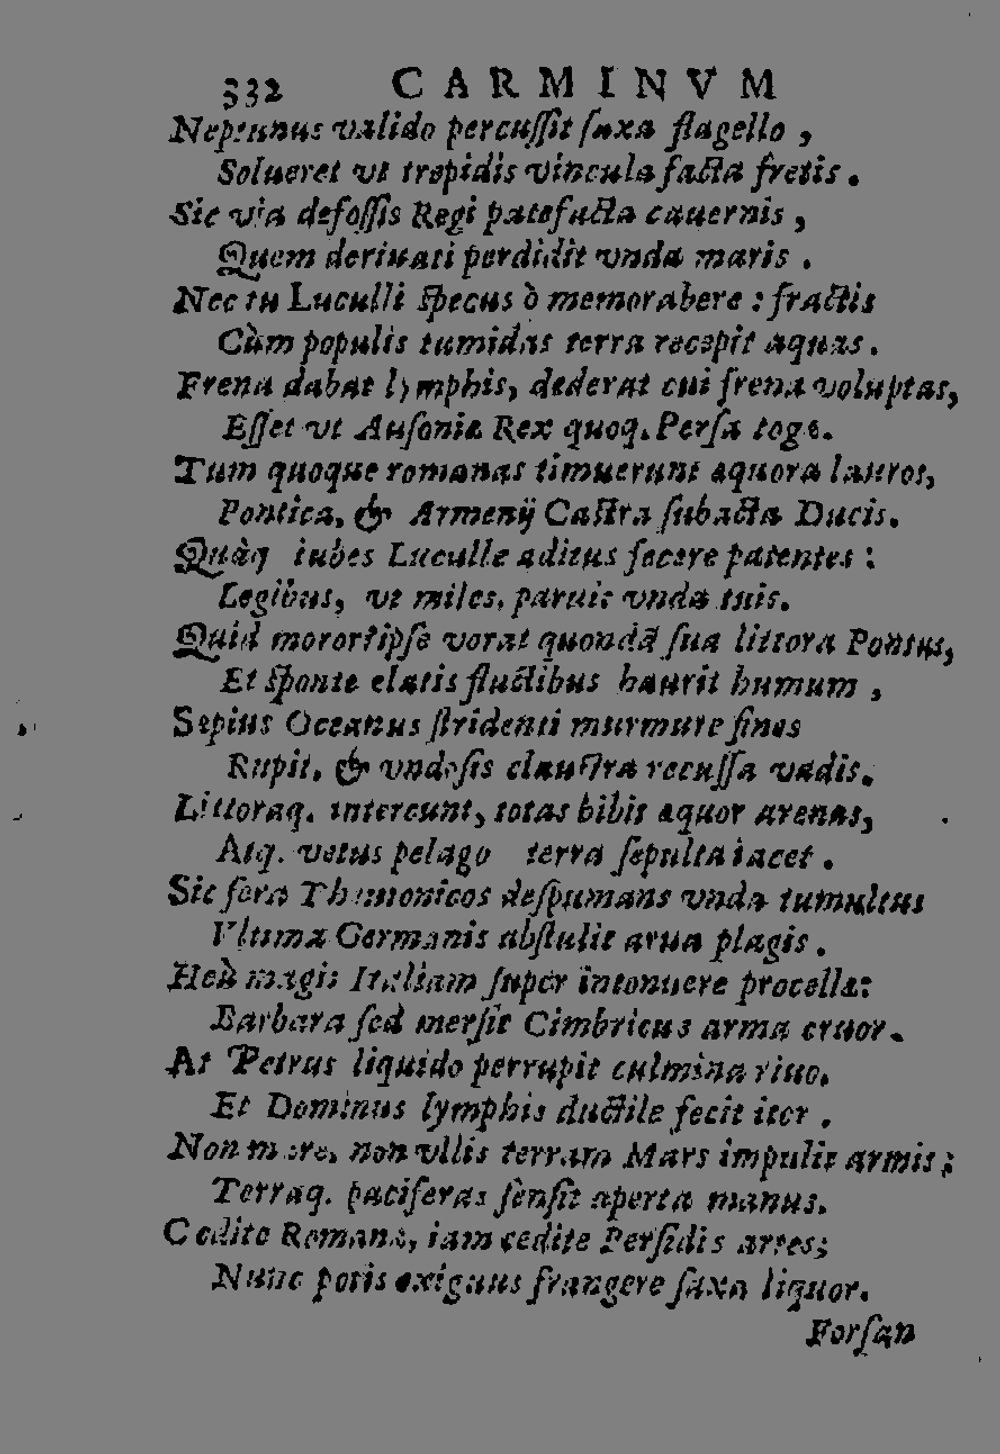 332 CARMINVM
Neptunus valido percuſſit ſaxa flagello ,
Solueret vt trepidis vincula facta fretis .
Sic via defoſſis Regi patefacta cauernis ,
Quem deriuati perdidit vnda maris .
Nec tu Luculli ſpecus ò memorabere : fractis
Cùm populis tumidas terra recepit aquas .
Frena dabat lymphis, dederat cui frena voluptas,
Eſſet vt Auſoniæ Rex quoq. Perſa togæ.
Tum quoque romanas timuerunt æquora lauros,
Pontica, & Armenij Caſtra ſubacta Ducis.
Quàq iubes Luculle aditus fecere patentes :
Legibus, vt miles, paruit vnda tuis.
Quid moror? ipſe vorat quondā ſua littora Pontus,
Et ſponte elatis fluctibus haurit humum ,
Sæpius Oceanus ſtridenti murmure fines
Rupit, & vndoſis clauſtra recuſſa vadis.
Littoraq. intereunt, totas bibit æquor arenas,
Atq. vetus pelago terra ſepulta iacet .
Sic fera deſpumans vnda tumultus
Vltima Germanis abſtulit arua plagis .
Heù magis Italiam ſuper intonuere procellæ:
Barbara ſed merſit Cimbricus arma cruor.
At Petrus liquido perrupit culmina riuo,
Et Dominus lymphis ductile fecit iter .
Non mare, non vllis terram Mars impulit armis;
Terraq. paciferas ſenſit aperta manus.
Cedite Romanæ, iam cedite Perſidis artes;
Nunc potis exiguus frangere ſaxa liquor.
Forſan